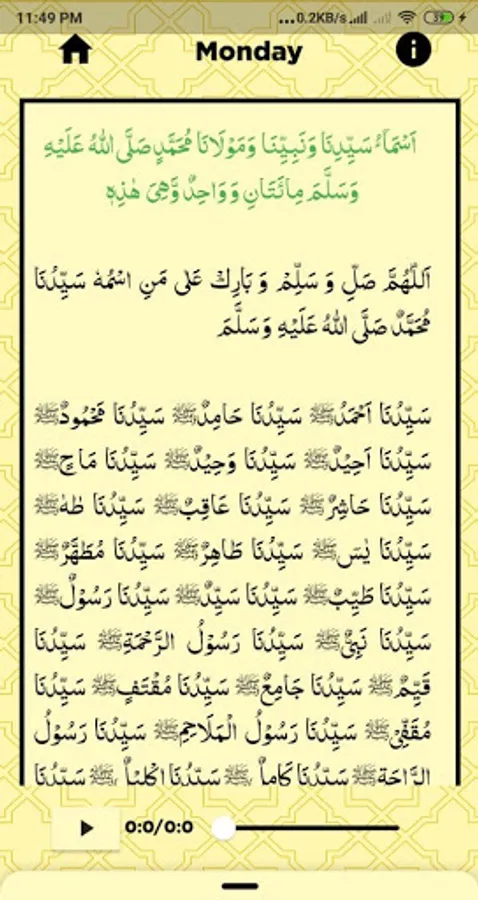 11:49 PM
...0.2KB/s
39
Monday
اَسْمَاۤءُ سَيِّدِنَا وَنَبِيِّنَا وَمَوْلَانَا مُحَمَّدٍ صَلَّى اللهُ عَلَيْهِ
وَسَلَّمَ مِائَتَانِ وَوَاحِدٌ وَّهِىَ هٰذِهٖ
اَللّٰهُمَّ صَلِّ وَ سَلِّمْ وَ بَارِكْ عَلٰى مَنِ اسْمُهٗ سَيِّدُنَا
مُحَمَّدٌ صَلَّى اللهُ عَلَيْهِ وَسَلَّمَ
سَيِّدُنَا اَحْمَدُﷺ سَيِّدُنَا حَامِدٌﷺ سَيِّدُنَا مَحْمُودٌﷺ
سَيِّدُنَا اَحِيْدٌﷺ سَيِّدُنَا وَحِيْدٌﷺ سَيِّدُنَا مَاحٍﷺ
سَيِّدُنَا حَاشِرٌﷺ سَيِّدُنَا عَاقِبٌﷺ سَيِّدُنَا طٰهٰﷺ
سَيِّدُنَا يٰسٓﷺ سَيِّدُنَا طَاهِرٌﷺ سَيِّدُنَا مُطَهَّرٌﷺ
سَيِّدُنَا طَيِّبٌﷺ سَيِّدُنَا سَيِّدٌﷺ سَيِّدُنَا رَسُوْلٌﷺ
سَيِّدُنَا نَبِىٌّﷺ سَيِّدُنَا رَسُوْلُ الرَّحْمَةِﷺ سَيِّدُنَا
قَيِّمٌﷺ سَيِّدُنَا جَامِعٌﷺ سَيِّدُنَا مُقْتَفٍﷺ سَيِّدُنَا
مُقَفِّىْﷺ سَيِّدُنَا رَسُوْلُ الْمَلَاحِمِﷺ سَيِّدُنَا رَسُوْلُ
الرَّاحَةِﷺ سَيِّدُنَا كَامِلٌﷺ سَيِّدُنَا اِكْلِيْلٌﷺ سَيِّدُنَا
0:0/0:0